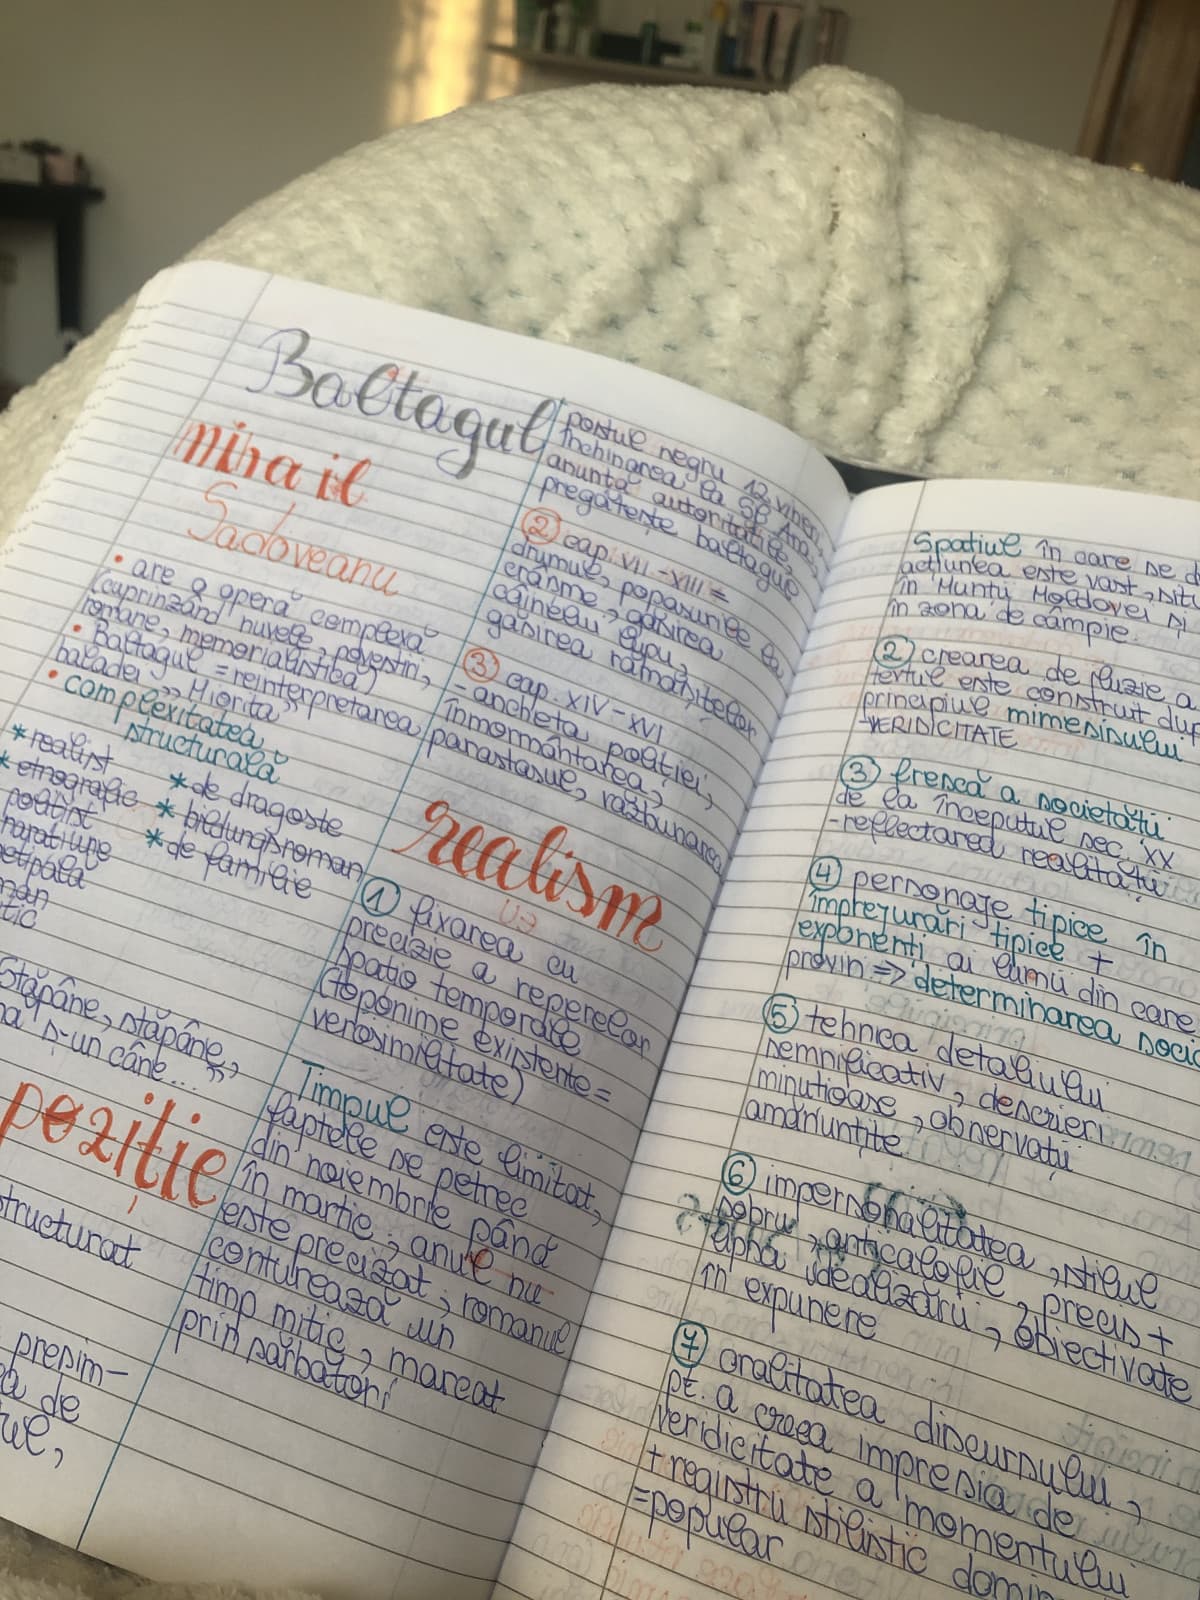 Baltagul
mihail
Sadoveanu
• are o operă complexă
(cuprinzând nuvele, povestiri,
romane, memorialistica)
• Baltagul = reinterpretarea
baladei „Miorița”
• complexitatea
structurală
* realist
* etnografic
polițist
* de dragoste
* bildungsroman
* de familie
Stăpâne, stăpâne,
s-un câne..."
poziție
structurat
presim-
de
postul negru 12 vineri,
închinarea la Sf. Ana,
anunță autoritățile,
pregătește baltagul
② cap. VII - XIII =
drumul, popasurile la
crâsme, găsirea
câinelui Lupu,
găsirea rămășițelor
③ cap. XIV - XVI
= ancheta poliției,
înmormântarea,
parastasul, răzbunarea
realism
① fixarea cu
precizie a reperelor
spatio temporale
(toponime existente =
verosimilitate)
Timpul este limitat,
faptele se petrec
din noiembrie până
în martie; anul nu
este precizat, romanul
conturează un
timp mitic, marcat
prin sărbători
Spațiul în care se
acțiunea este vast,
în Munții Moldovei și
în zona de câmpie.
② crearea de iluzie a
textul este construit
principiul mimesisului
VERIDICITATE
③ frescă a societății
de la începutul sec. XX
-reflectarea realității
④ personaje tipice în
împrejurări tipice +
exponenți ai lumii din care
provin => determinarea
⑤ tehnica detaliului
semnificativ, descrieri
minuțioase, observații
amănunțite
⑥ impersonalitatea, stilul
sobru, anticalofil, precis +
idealizării, obiectivate
în expunere
⑦ oralitatea discursului,
pt. a creea impresia de
veridicitate a momentului
+ registru stilistic
=popular